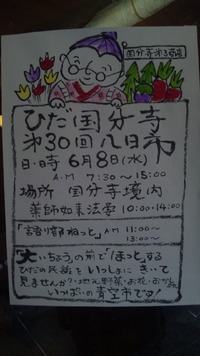 国分寺第3駐場
ひだ国分寺
第30回八日市
日・時 6月8日(水)
AM 7:30～15:00
場所 国分寺境内
薬師如来法要 10:00-14:00
「語り部ねっと」AM 11:00～
13:00～
大いちょうの前で「ほっ」とする
ひだの民話をいっしょに きいて
見ませんか?・地元野菜・お花・おかし
いっぱいの青空市です!